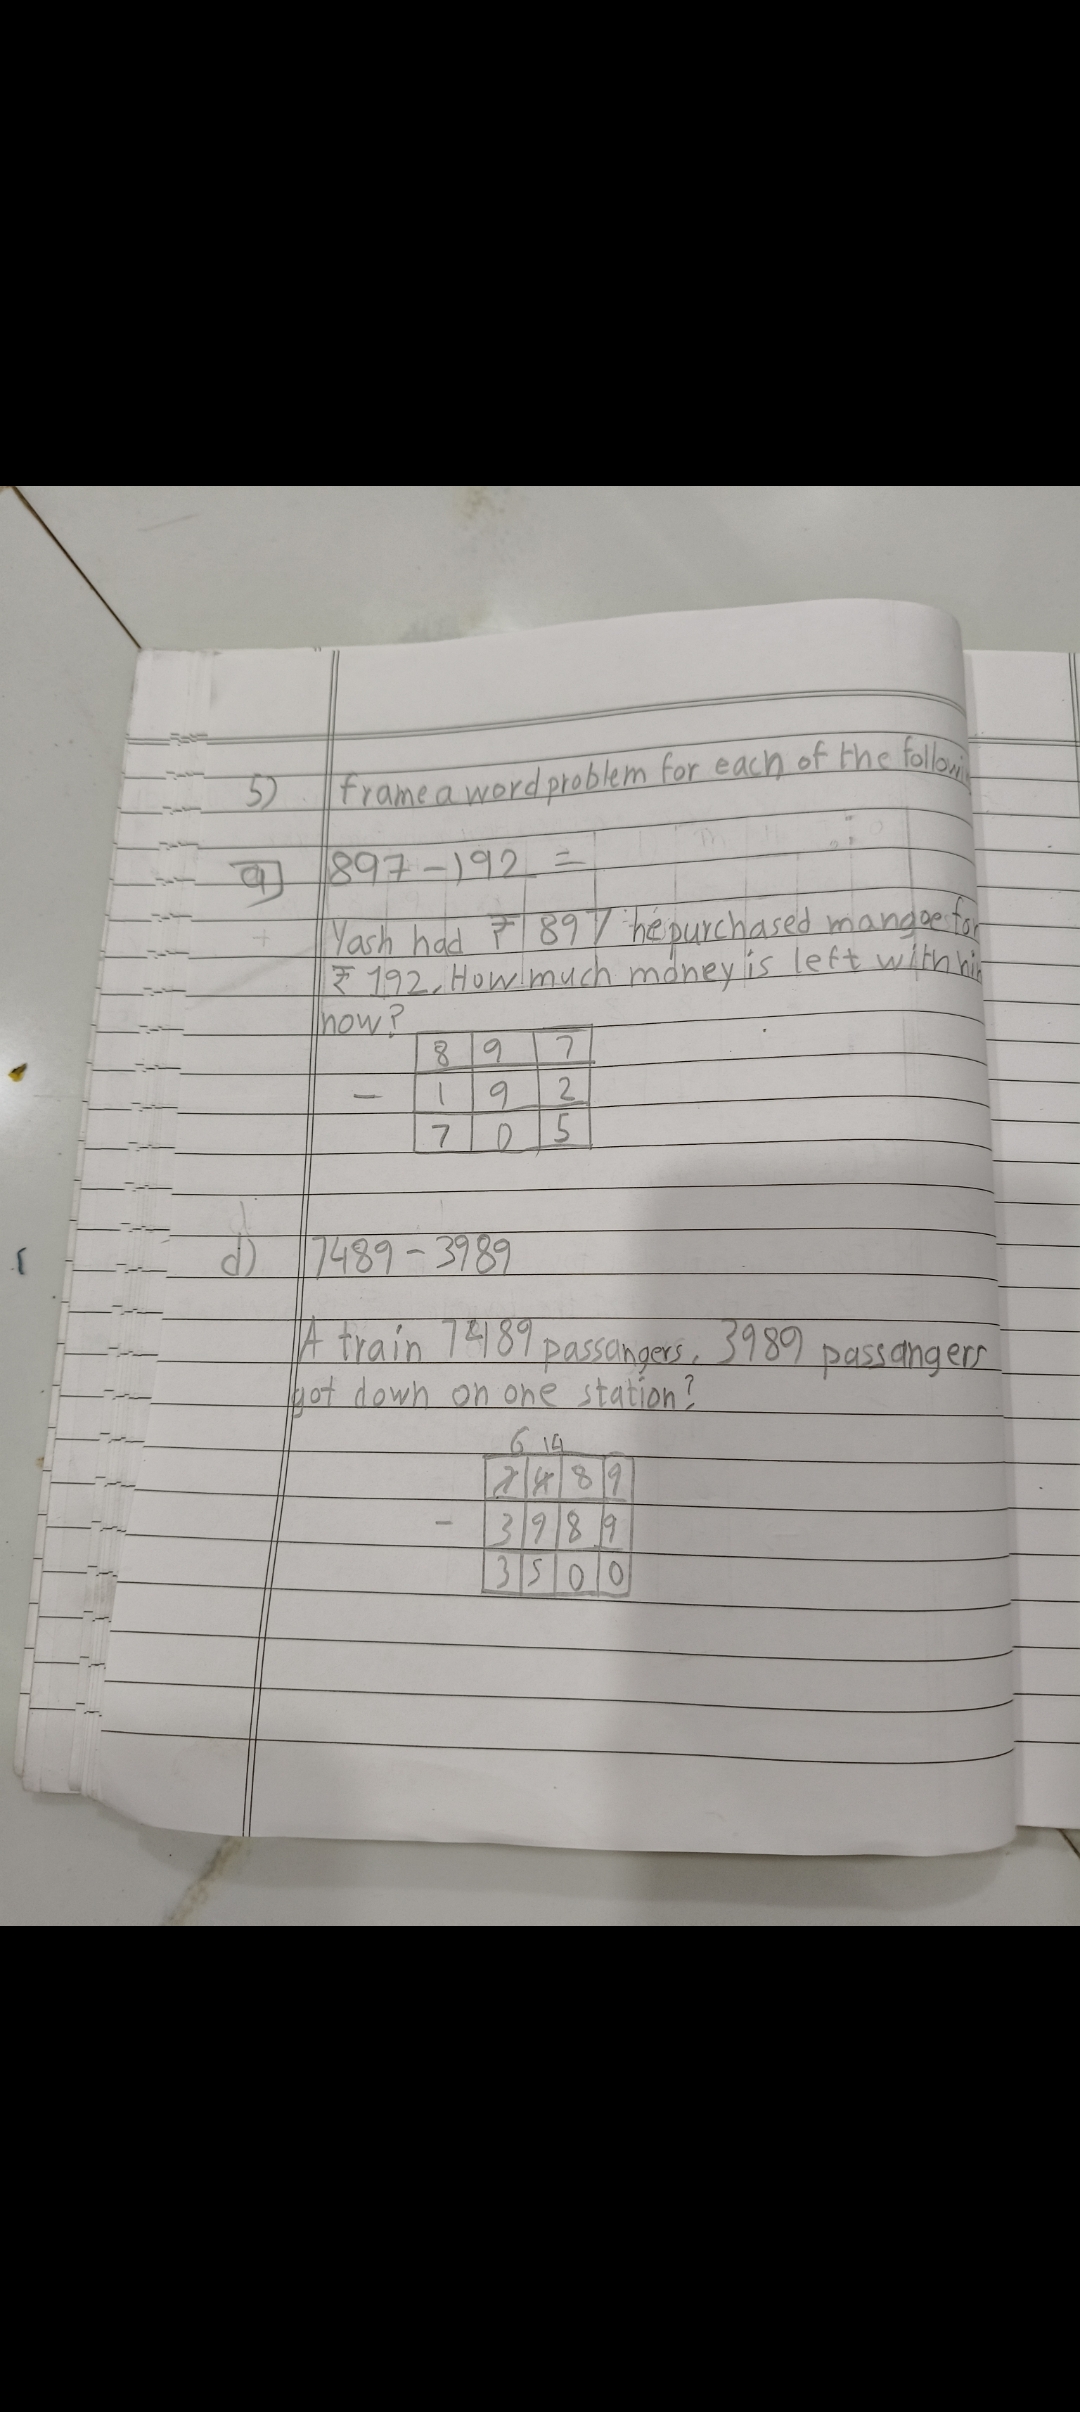 5) frame a word problem for each of the followi
a) 897-192 =
Yash had ₹ 897 he purchased mangoe for
₹ 192. How much money is left with hi
now?
8 9 7
- 1 9 2
7 0 5
d) 7489 - 3989
A train 7489 passangers. 3989 passangers
got down on one station?
6 14
7 4 8 9
- 3 9 8 9
3 5 0 0